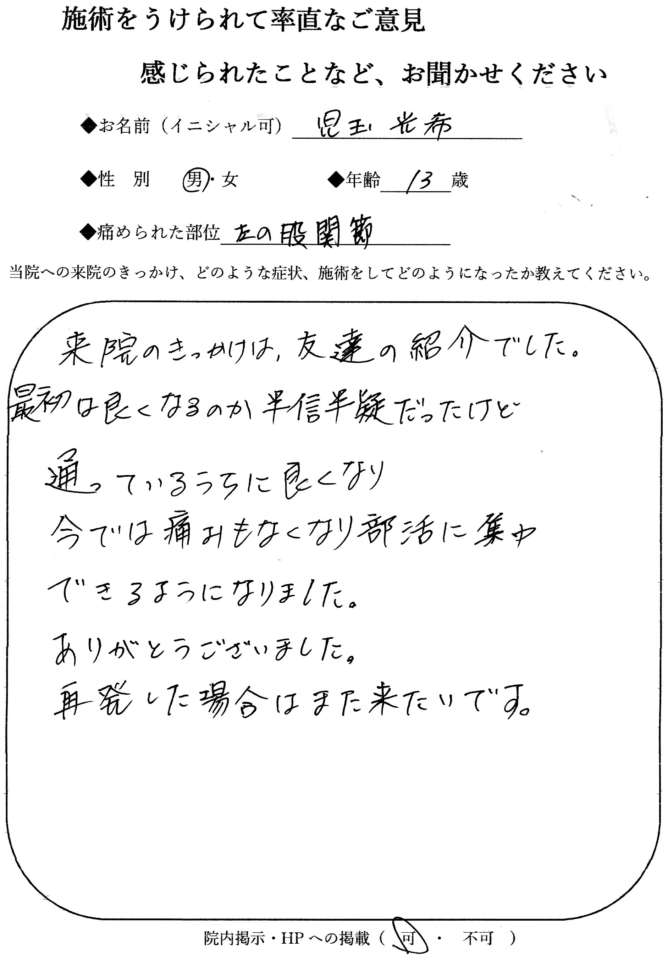 施術をうけられて率直なご意見
感じられたことなど、お聞かせください
◆お名前（イニシャル可） 児玉 光希
◆性 別 男・女 ◆年齢 13 歳
◆痛められた部位 左の股関節
当院への来院のきっかけ、どのような症状、施術をしてどのようになったか教えてください。
来院のきっかけは、友達の紹介でした。
最初は良くなるのか半信半疑だったけど
通っているうちに良くなり
今では痛みもなくなり部活に集中
できるようになりました。
ありがとうございました。
再発した場合はまた来たいです。
院内掲示・HPへの掲載（ 可 ・ 不可 ）